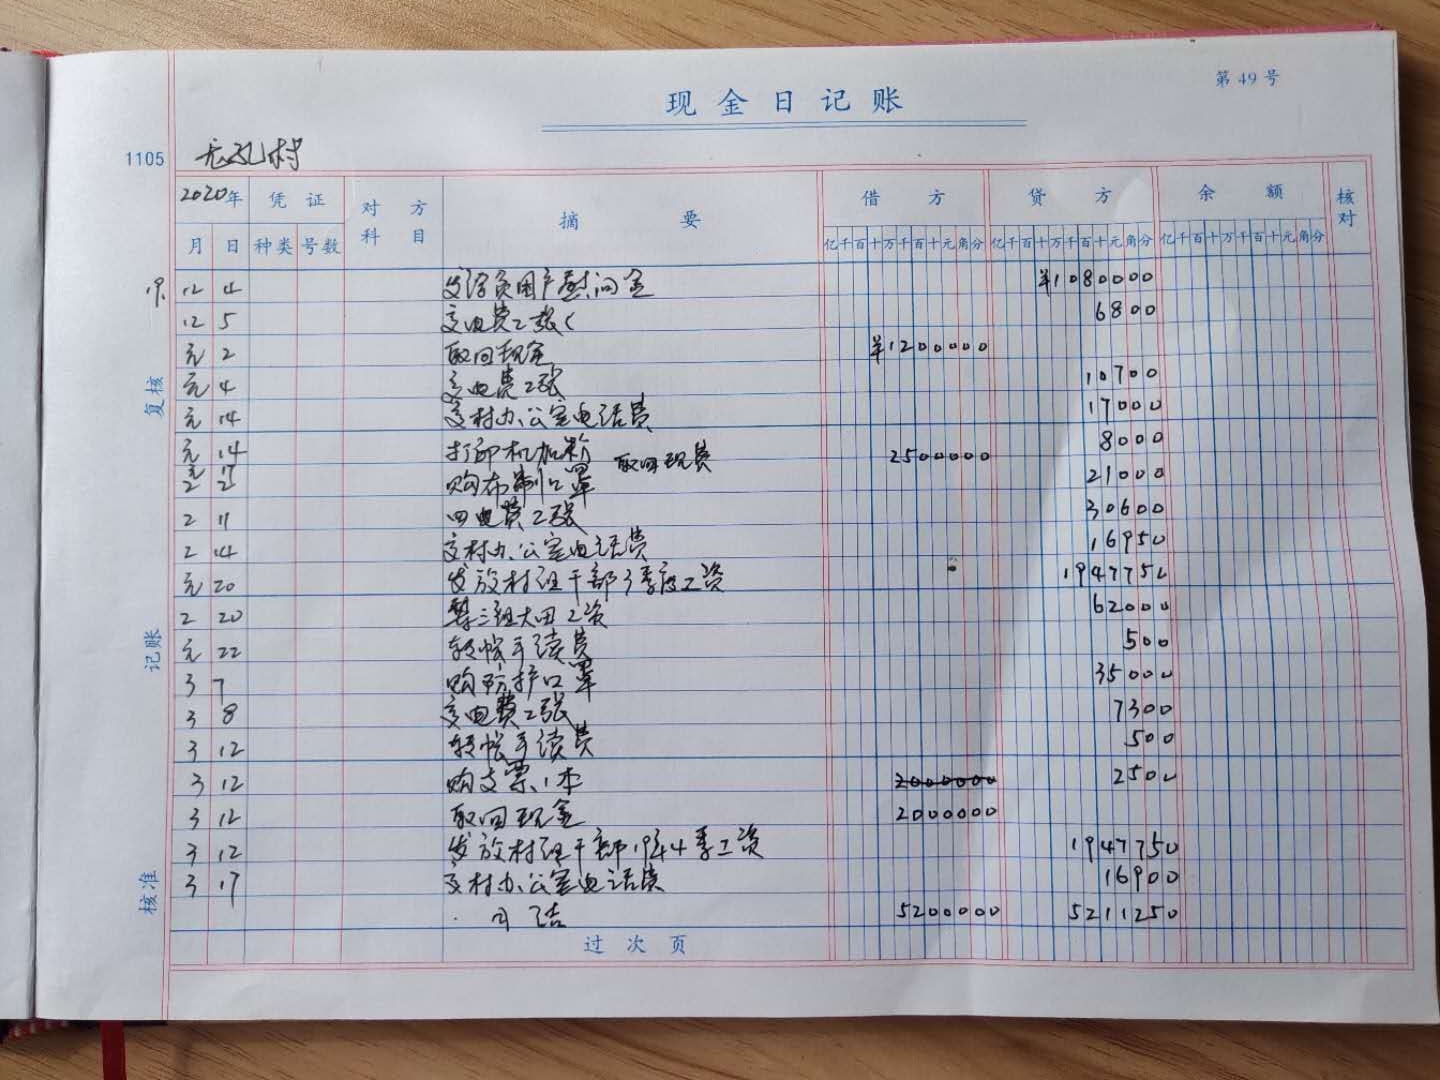 第 49 号
现 金 日 记 账
1105
2020年 凭 证 对 方 科 目 摘 要 借 方 贷 方 余 额 核对
月 日 种类 号数 亿千百十万千百十元角分 亿千百十万千百十元角分 亿千百十万千百十元角分
12 4 发 困户慰问金 ¥1080000
12 5 交电费2张 6800
元 2 取回现金 ¥1200000
元 4 交电费2张 10700
元 14 交村办公室电话费 17000
元 14 打印机加粉 8000
元 17 取回现费 2500000
2 2 购布制口罩 21000
2 11 电费2张 30600
2 14 交村办公室电话费 16950
元 20 发放村组干部3季度工资 1947750
2 20 三组大田工资 62000
元 22 转帐手续费 500
3 7 购防护口罩 35000
3 8 交电费2张 7300
3 12 转帐手续费 500
3 12 购支票1本 2000000 2500
3 12 取回现金 2000000
3 12 发放村组干部19年4季工资 1947750
3 17 交村办公室电话费 16900
月结 5200000 5211250
过 次 页
复核
记账
核准